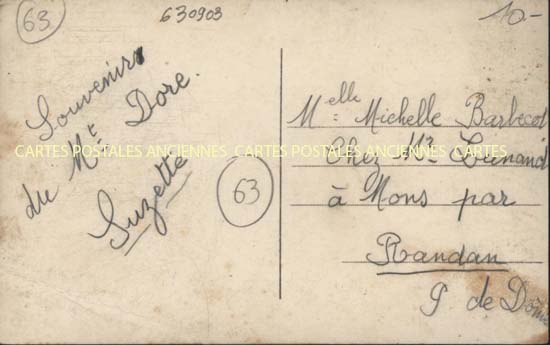 63
630903
10-
Souvenirs
du Mt Dore.
Suzette
63
Melle Michelle Barbecot
Chez Mr
à Mons par
Randan
P. de Dôme
CARTES POSTALES ANCIENNES CARTES POSTALES ANCIENNES CARTES